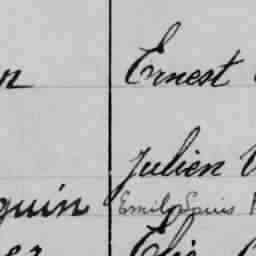 n Ernest
Julien
guin Emile Louis
Elie